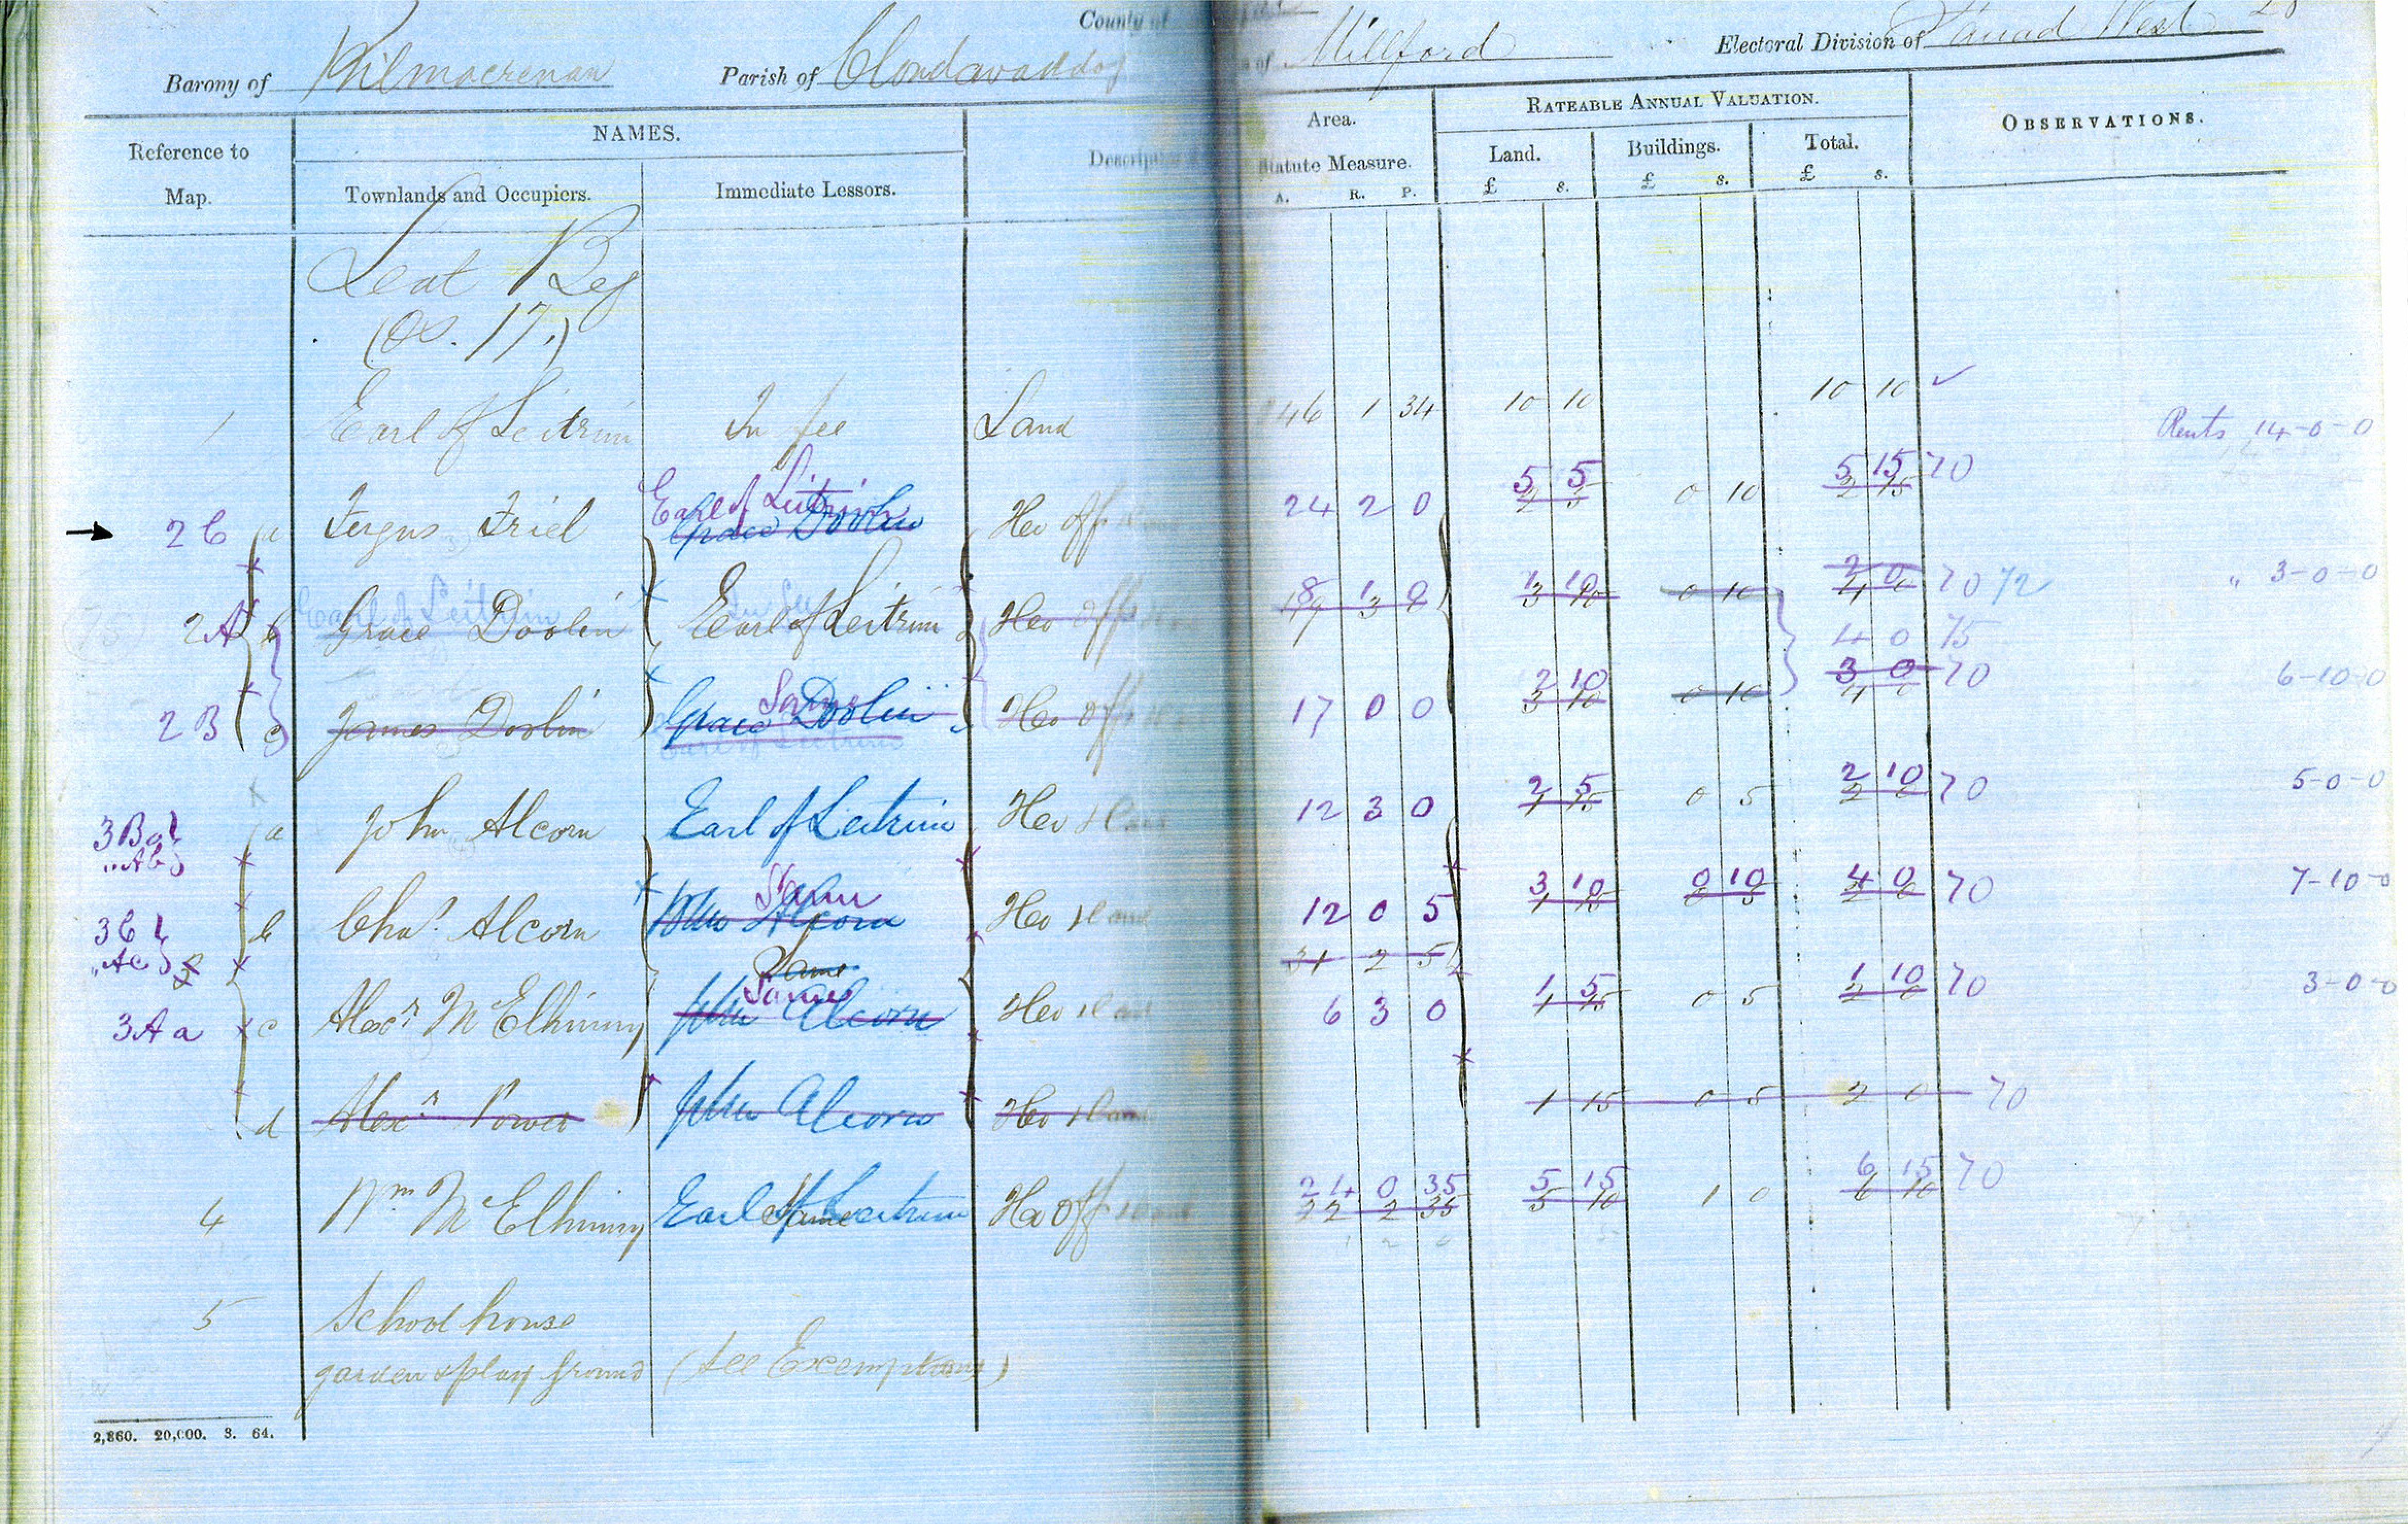 County of
Barony of Kilmacrenan Parish of Clondavaddog of Millford Electoral Division of Fanad West 28
Reference to Map. NAMES. Area. RATEABLE ANNUAL VALUATION. OBSERVATIONS.
Townlands and Occupiers. Immediate Lessors. Statute Measure. Land. Buildings. Total.
A. R. P. £ s. £ s. £ s.
Leat Beg
(Os. 17.)
1 Earl of Leitrim In fee Land 146 1 34 10 10 10 10 ✓
Rents 14-0-0
Earl of Leitrim 5 5 5 15 70
2 C a Fergus Friel Grace Doolin Ho off 24 2 0 2 5 0 10 2 15
Earl of Leitrim In fee 8 1 1 10 2 0 70 72 " 3-0-0
2A b Grace Doolin Earl of Leitrim Ho off 19 3 0 3 10 0 10 4 0
4 0 75
Same 2 10 3 0 70 6-10-0
2 B c James Doolin Grace Doolin Ho off 17 0 0 3 10 0 10 4 0
Earl of Leitrim
2 5 2 10 70 5-0-0
3Ba a John Alcorn Earl of Leitrim Ho & land 12 3 0 1 15 0 5 2 0
"Ab
Same 3 10 0 10 4 0 70 7-10-0
3C b Chas. Alcorn John Alcorn Ho & land 12 0 5 1 15 0 5 2 0
"Ac Same 31 2 5
Same 1 5 1 10 70 3-0-0
3Aa c Alexr. McElhinny John Alcorn Ho & land 6 3 0 1 15 0 5 2 0
d Alexr. Power John Alcorn Ho & land 1 15 0 5 2 0 70
24 0 35 5 15 6 15 70
4 Wm McElhinny Earl of Leitrim Same Ho off & land 22 2 35 5 10 1 0 6 10
5 School house
garden & play ground (see Exemptions)
2,860. 20,000. 3. 64.